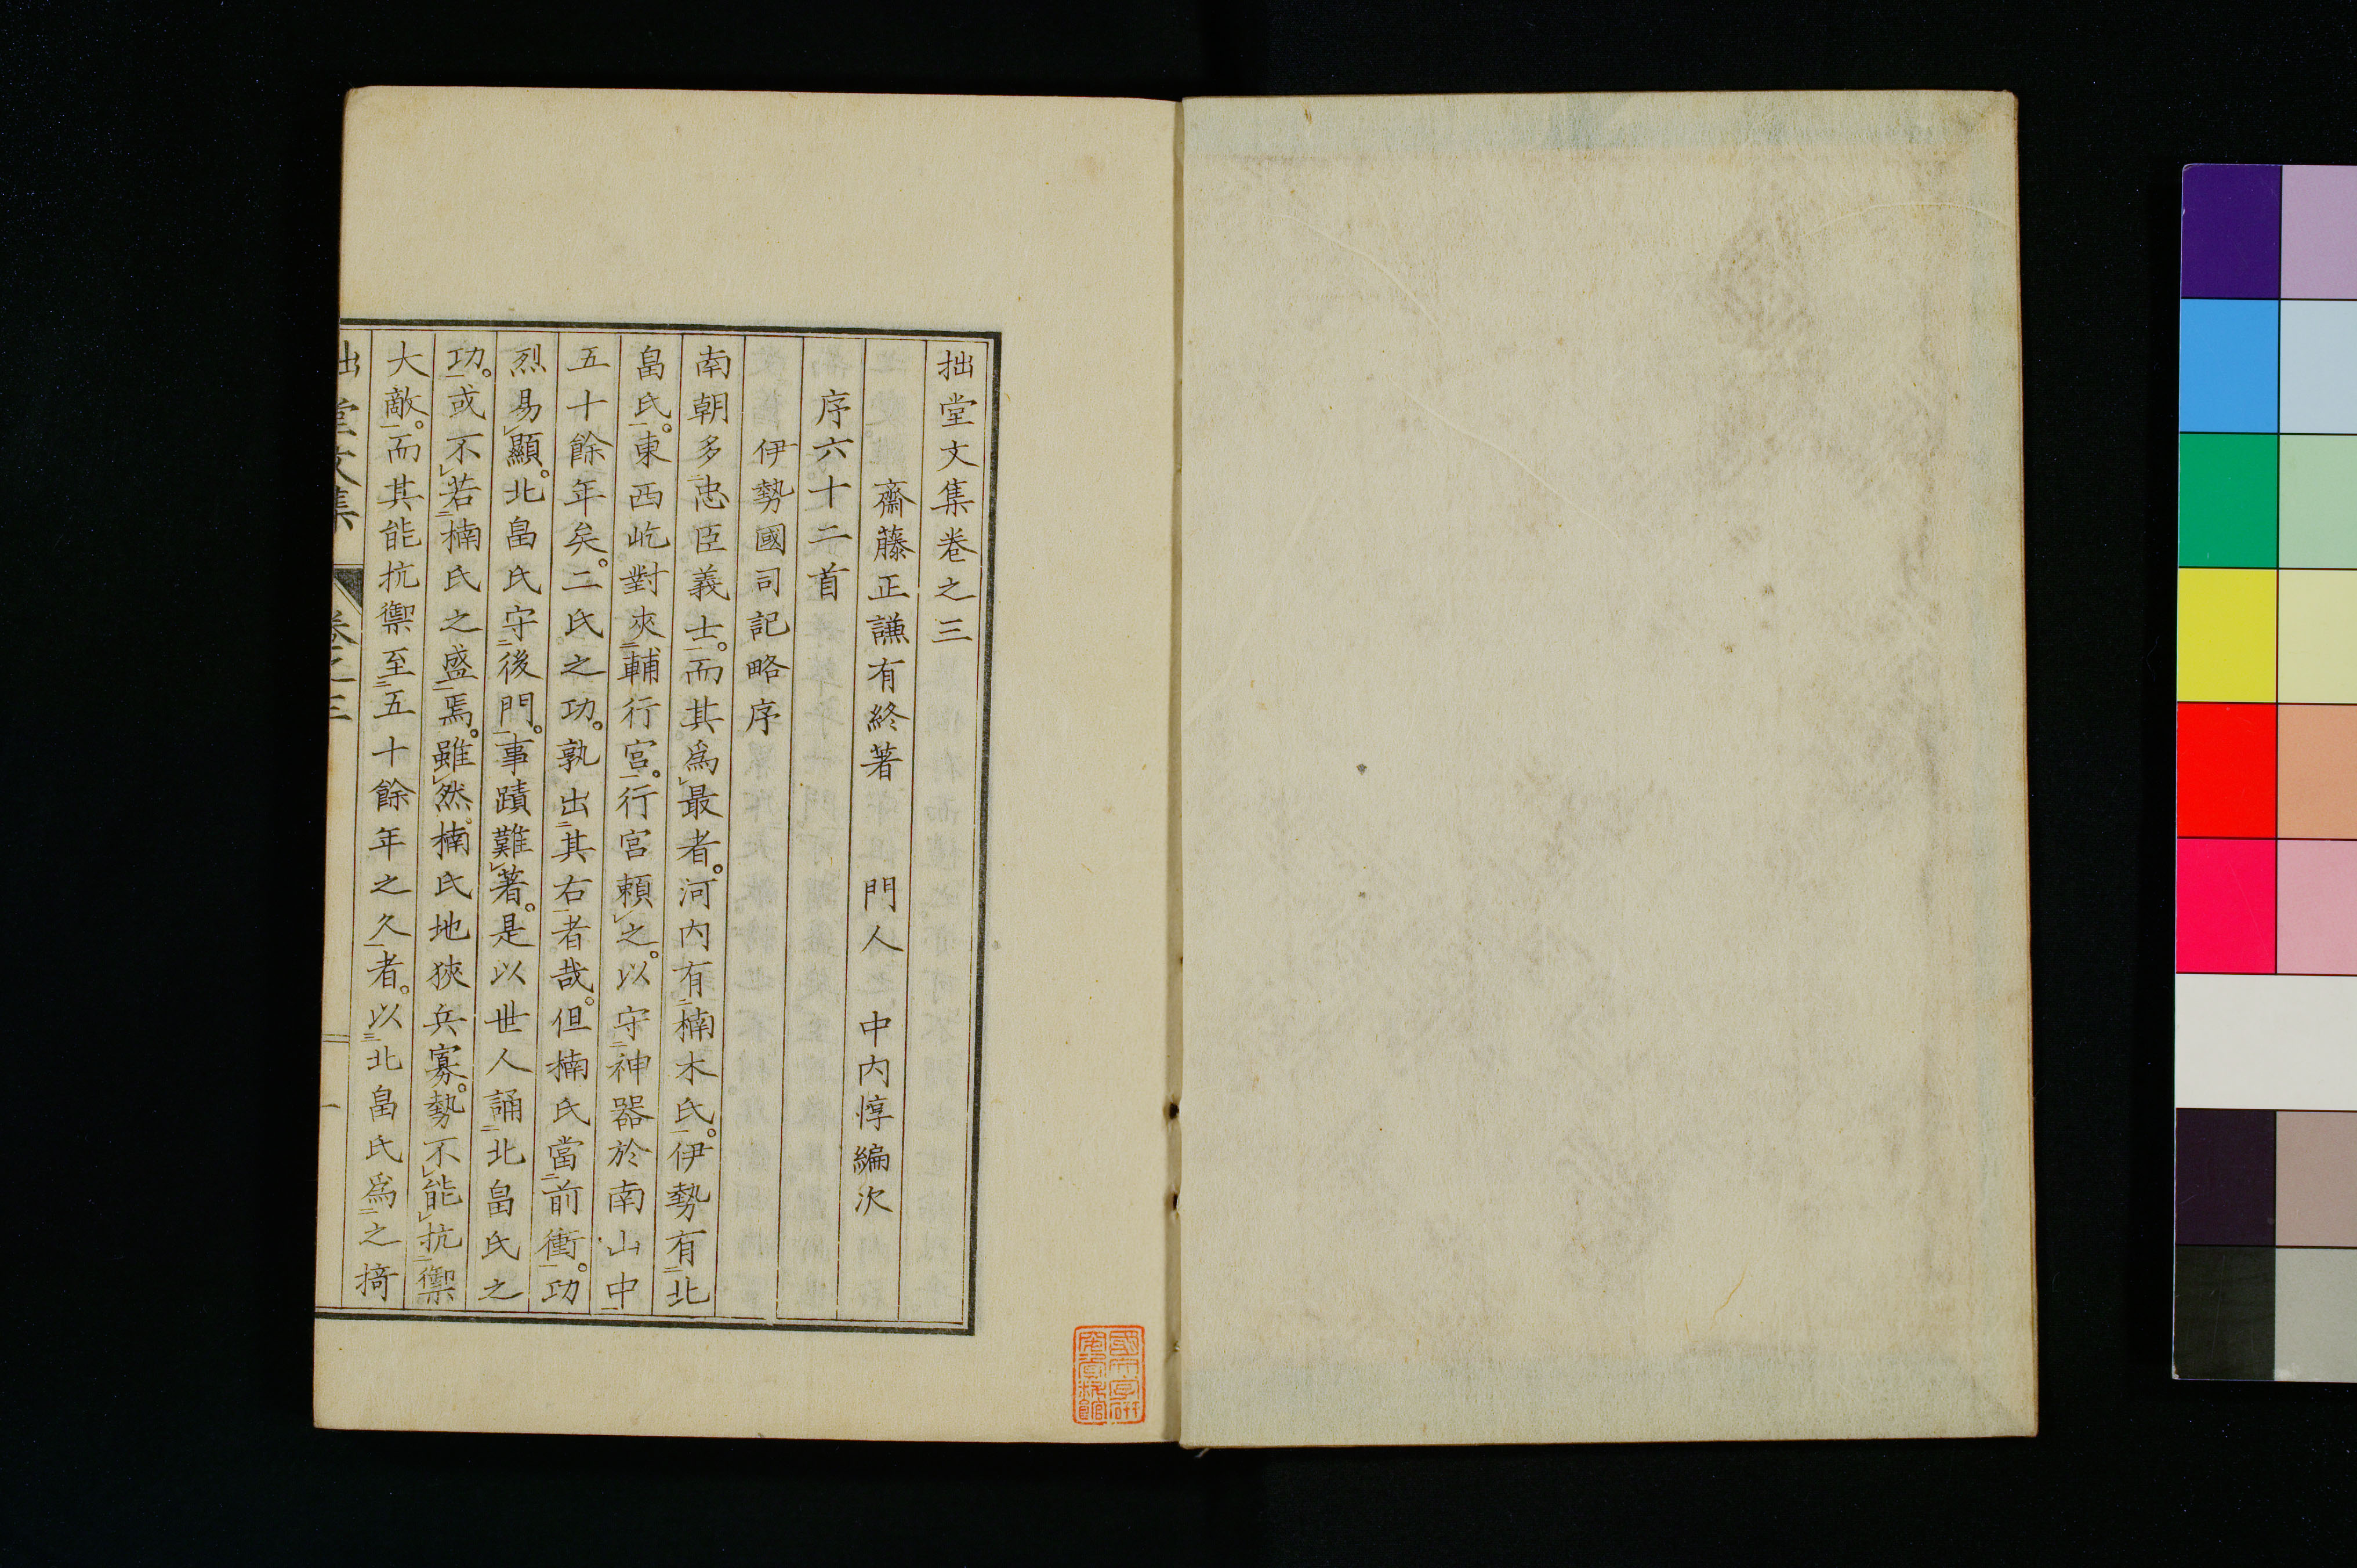 拙堂文集卷之三
齋藤正謙有終著　門人　中内惇編次
序六十二首
伊勢國司記略序
南朝多㆓忠臣義士㆒。而其爲㆑最者。河内有㆓楠木氏㆒。伊勢有㆓北
畠氏㆒。東西屹對夾㆓輔行宮㆒。行宮賴㆑之。以守㆓神器於南山中㆒
五十餘年矣。二氏之功。孰出㆓其右㆒者哉。但楠氏當㆓前衝㆒。功
烈易㆑顯。北畠氏守㆓後門㆒。事蹟難㆑著。是以世人誦㆓北畠氏之
功㆒。或不㆑若㆓楠氏之盛㆒焉。雖㆑然。楠氏地狹兵寡。勢不㆑能㆑抗㆓禦
大敵㆒。而其能抗禦至㆓五十餘年之久㆒者。以㆘北畠氏爲㆓之掎
拙堂文集　卷之三　一